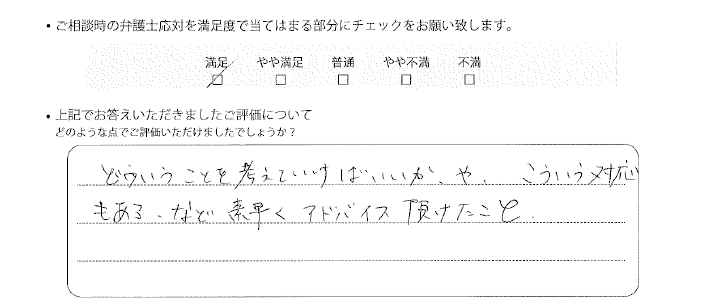 ・ご相談時の弁護士応対を満足度で当てはまる部分にチェックをお願い致します。
満足 やや満足 普通 やや不満 不満
☑ □ □ □ □
・上記でお答えいただきましたご評価について
どのような点でご評価いただけましたでしょうか？
どういうことを考えていけばいいか、や、こういう対応
もある、など素早くアドバイス頂けたこと。